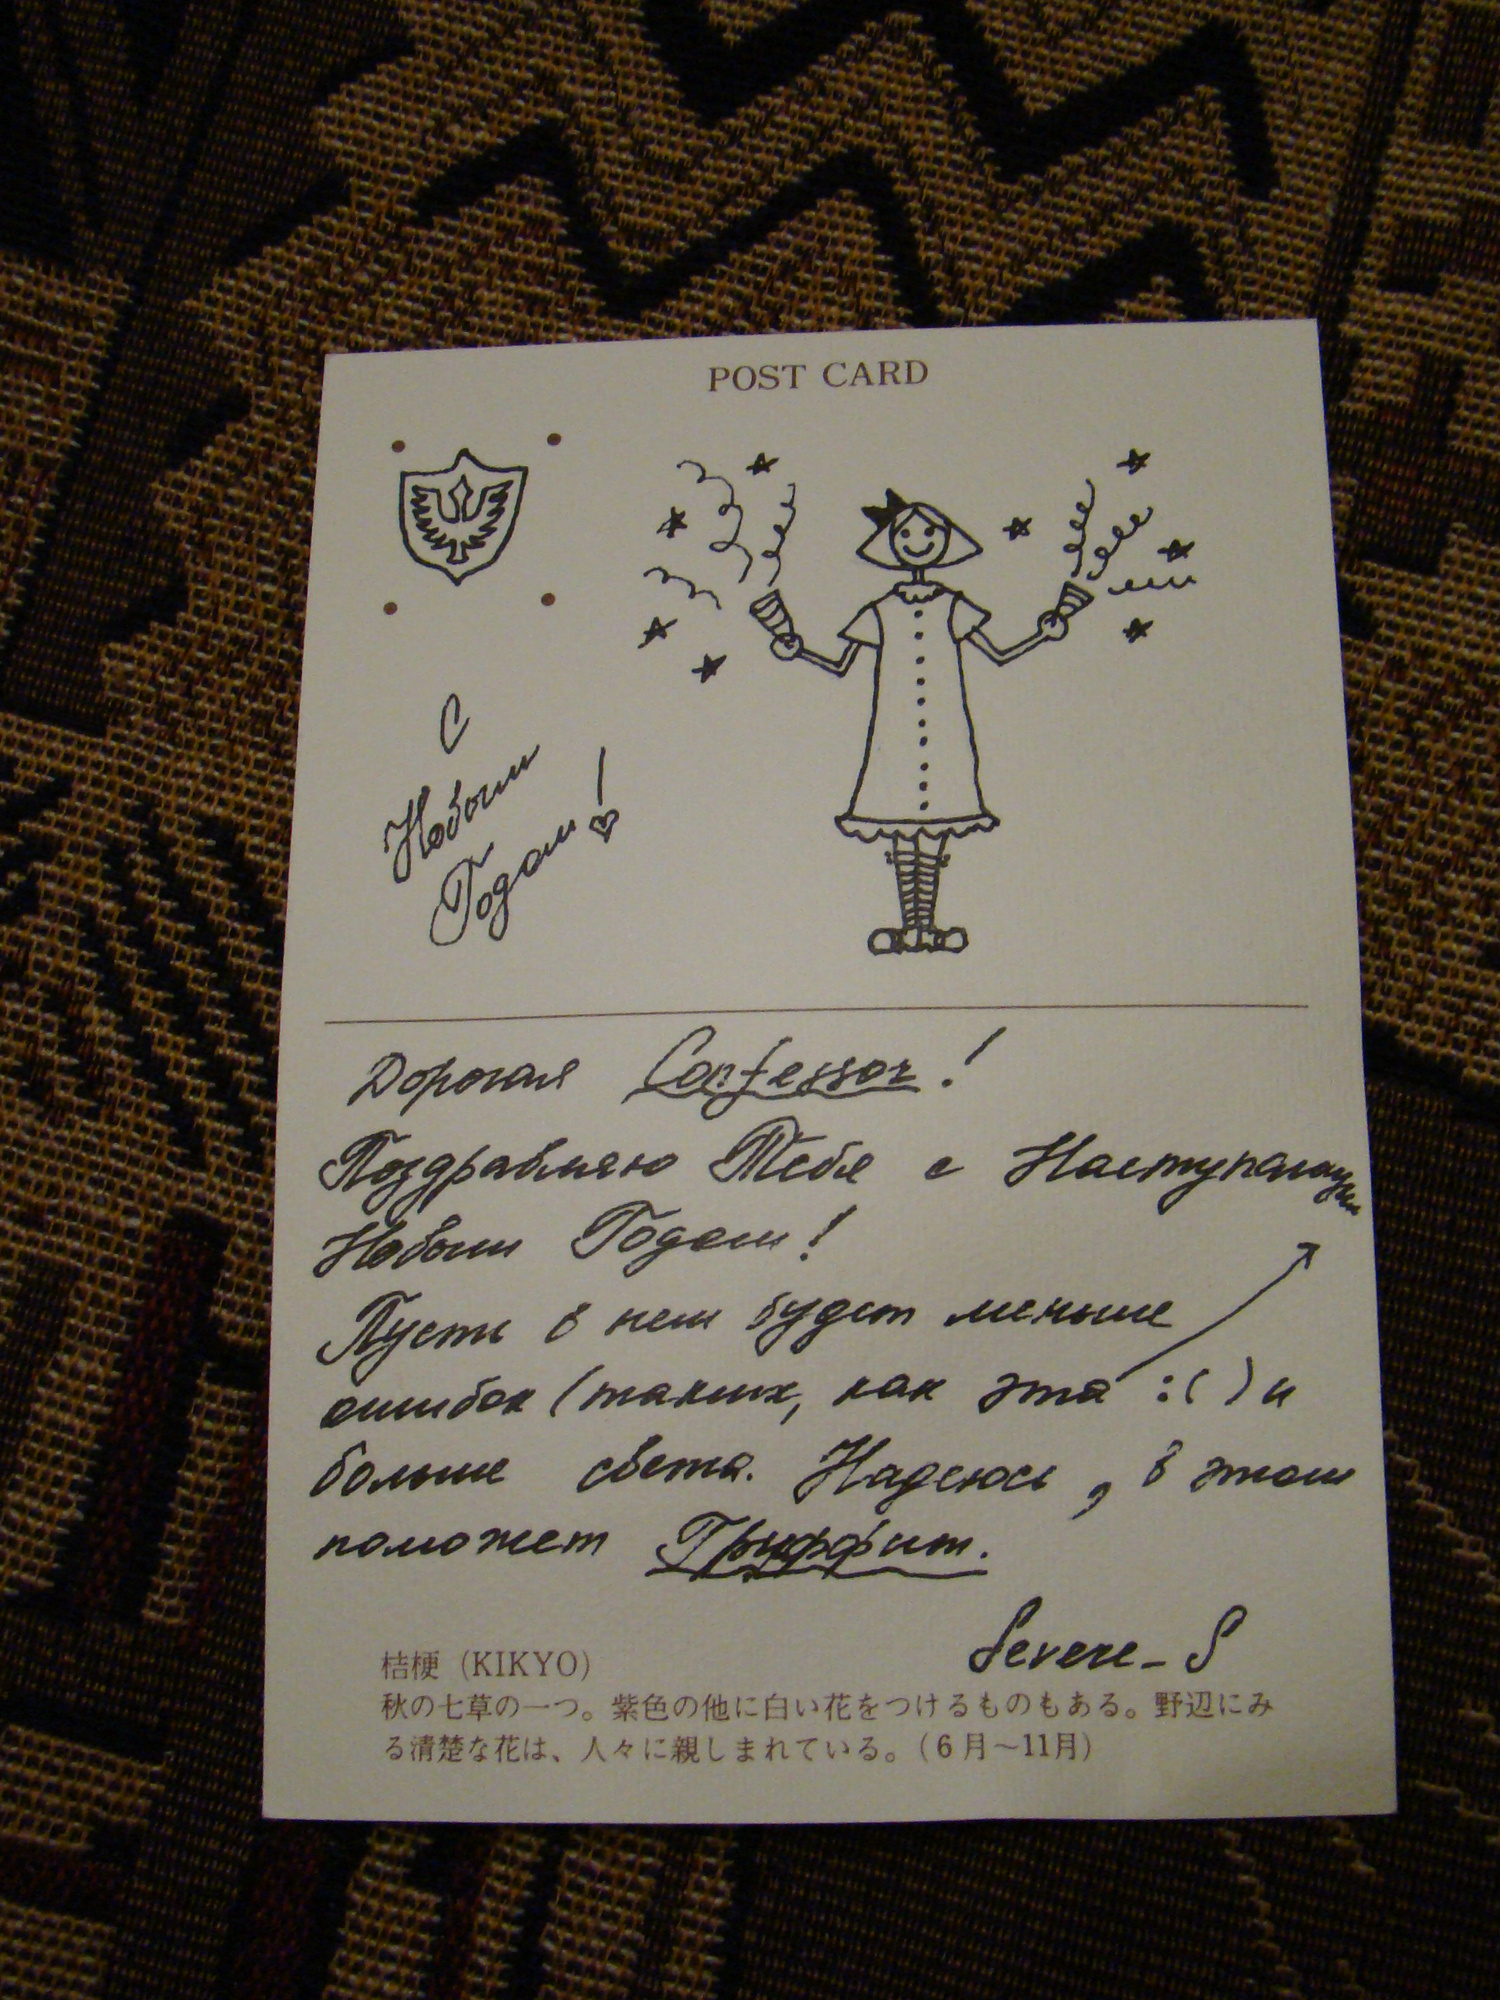 POST CARD
С
Новым
Годом!
Дорогая Confessor!
Поздравляю Тебя с Наступающим
Новым Годом!
Пусть в нем будет меньше
ошибок (таких, как эта :( ) и
больше света. Надеюсь, в этом
поможет Гриффит.
Severe_S
桔梗 (KIKYO)
秋の七草の一つ。紫色の他に白い花をつけるものもある。野辺にみ
る清楚な花は、人々に親しまれている。(6月〜11月)